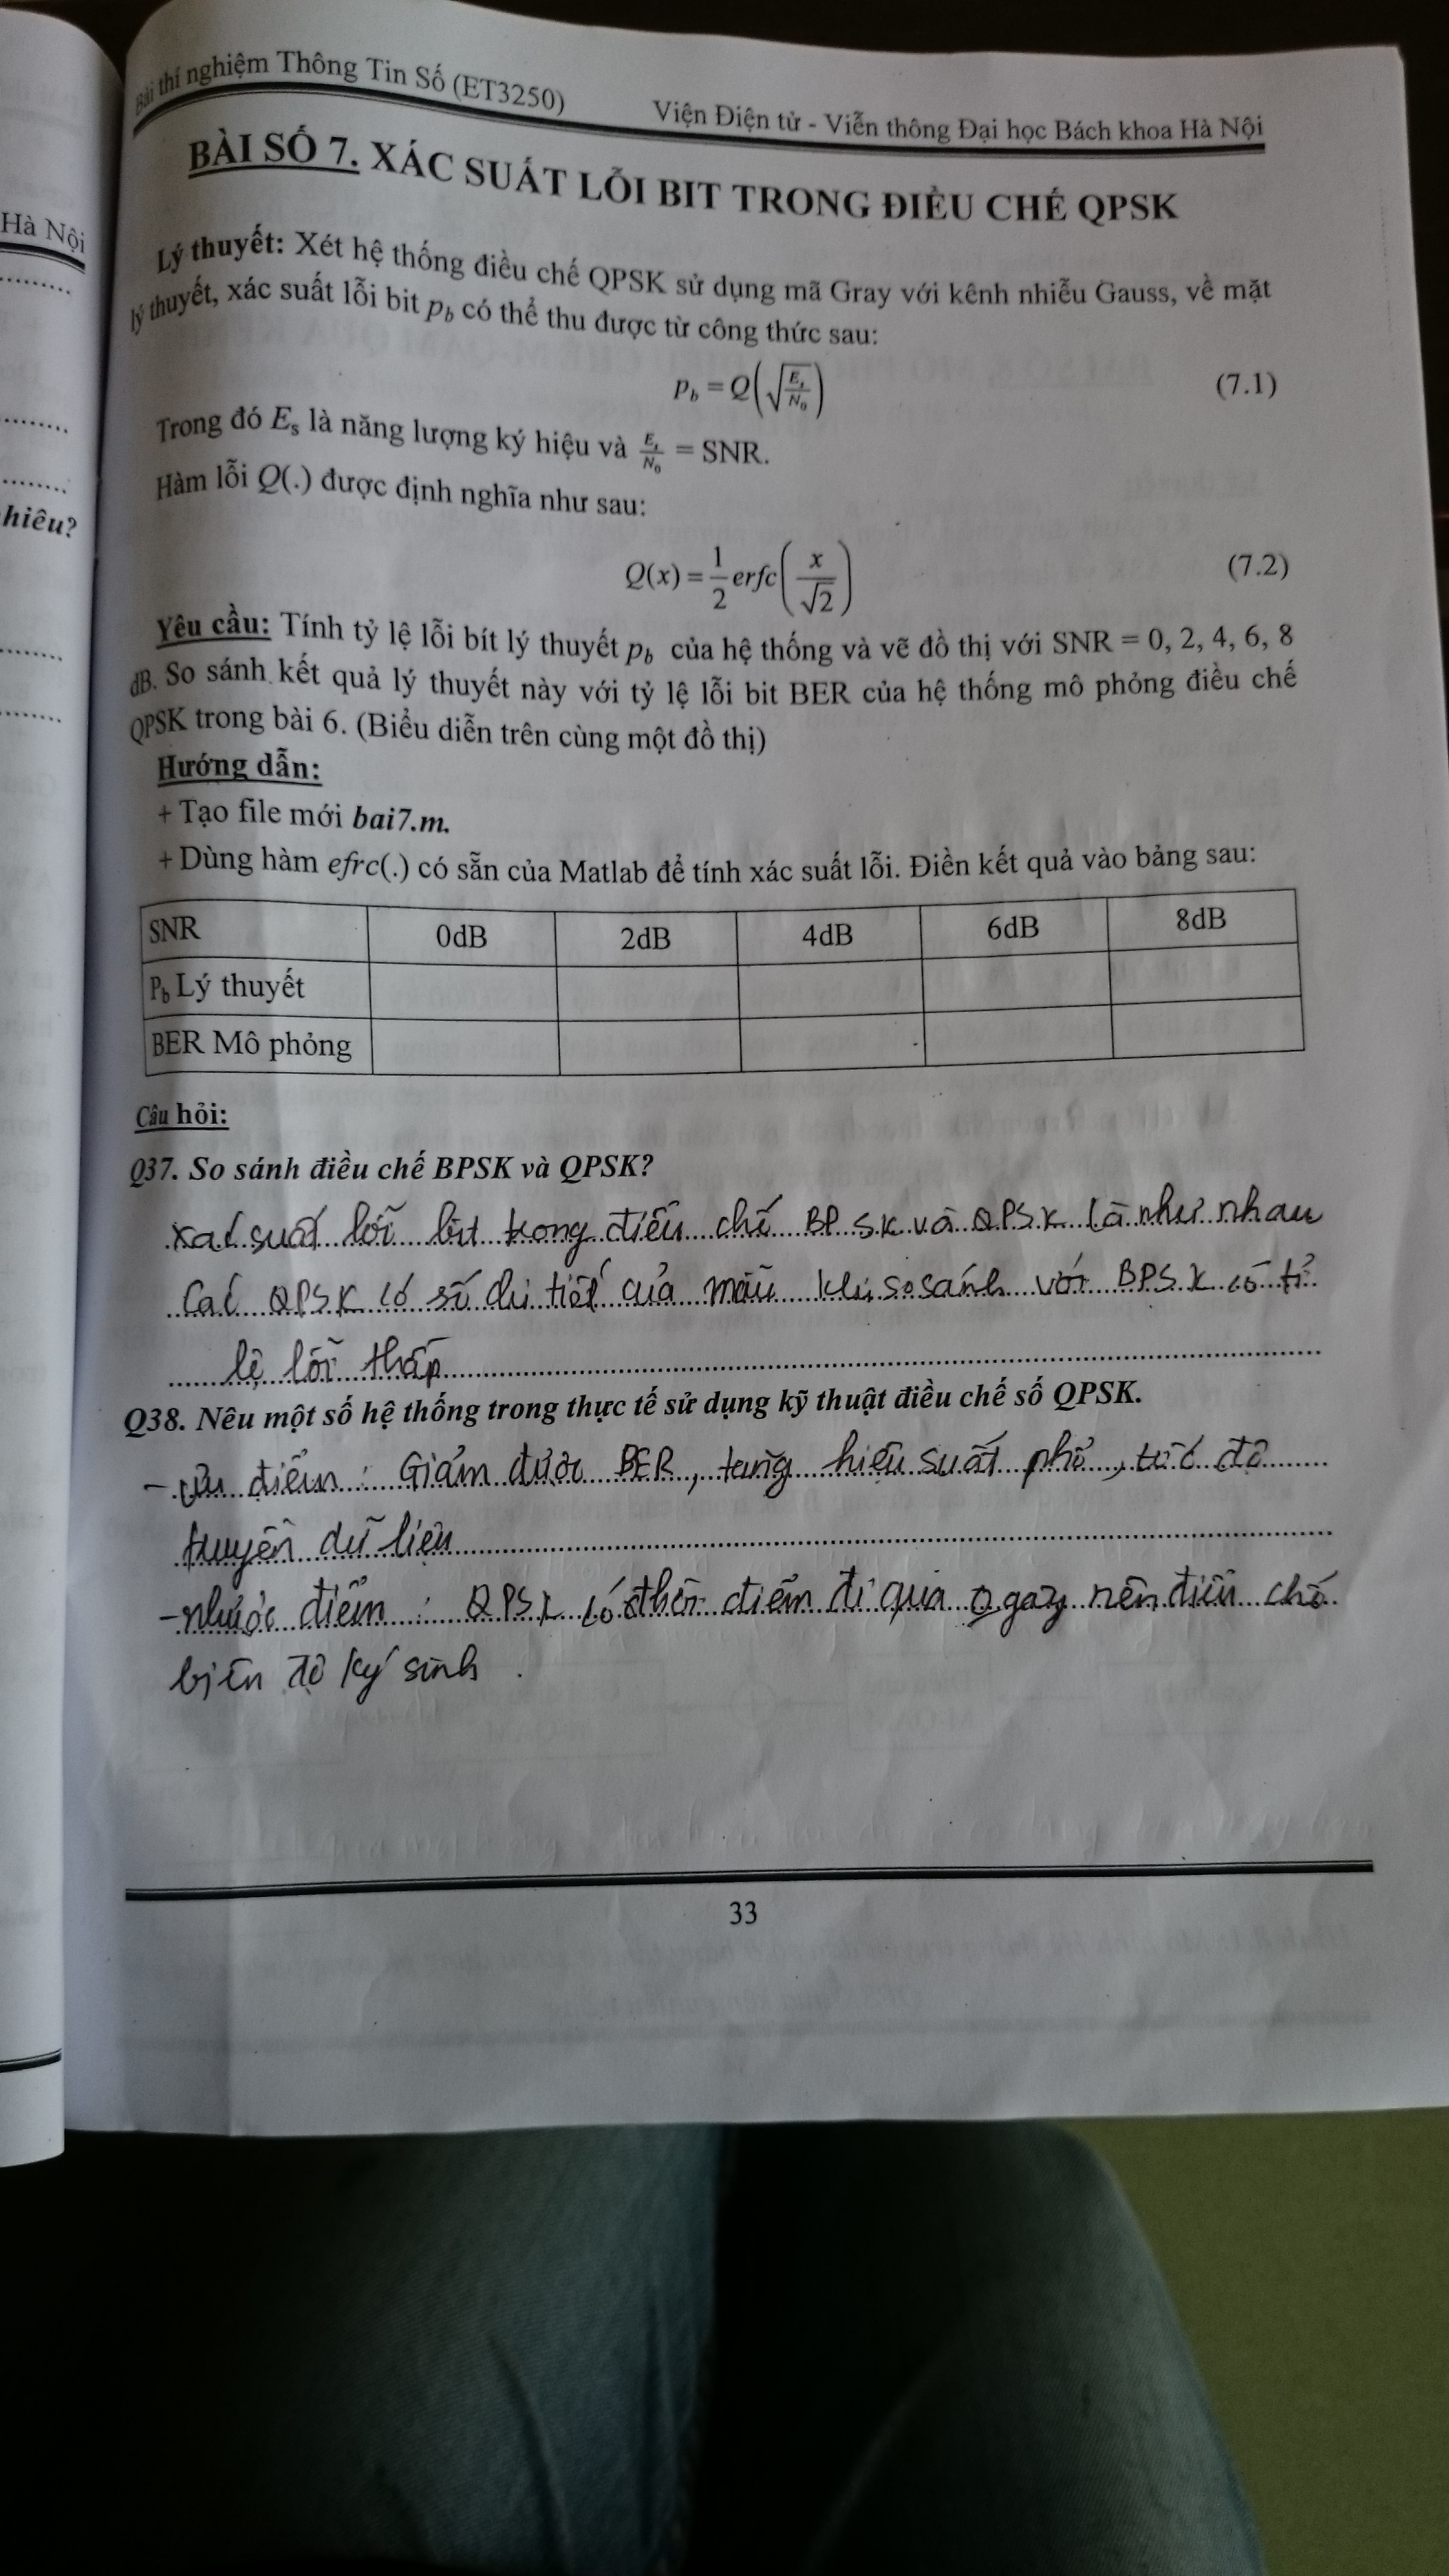 Hà Nội
hiêu?
Bài thí nghiệm Thông Tin Số (ET3250)
Viện Điện tử - Viễn thông Đại học Bách khoa Hà Nội
BÀI SỐ 7. XÁC SUẤT LỖI BIT TRONG ĐIỀU CHẾ QPSK
Lý thuyết: Xét hệ thống điều chế QPSK sử dụng mã Gray với kênh nhiễu Gauss, về mặt
lý thuyết, xác suất lỗi bit p_b có thể thu được từ công thức sau:
p_b = Q(√(E_s/N_0)) (7.1)
Trong đó E_s là năng lượng ký hiệu và E_s/N_0 = SNR.
Hàm lỗi Q(.) được định nghĩa như sau:
Q(x) = 1/2 erfc(x/√2) (7.2)
Yêu cầu: Tính tỷ lệ lỗi bít lý thuyết p_b của hệ thống và vẽ đồ thị với SNR = 0, 2, 4, 6, 8
dB. So sánh kết quả lý thuyết này với tỷ lệ lỗi bit BER của hệ thống mô phỏng điều chế
QPSK trong bài 6. (Biểu diễn trên cùng một đồ thị)
Hướng dẫn:
+ Tạo file mới bai7.m.
+ Dùng hàm efrc(.) có sẵn của Matlab để tính xác suất lỗi. Điền kết quả vào bảng sau:
SNR 0dB 2dB 4dB 6dB 8dB
P_b Lý thuyết
BER Mô phỏng
Câu hỏi:
Q37. So sánh điều chế BPSK và QPSK?
xác suất lỗi bit trong điều chế BPSK và QPSK là như nhau
Các QPSK có số chi tiết của mẫu khi so sánh với BPSK có tỉ
lệ lỗi thấp
Q38. Nêu một số hệ thống trong thực tế sử dụng kỹ thuật điều chế số QPSK.
- ưu điểm : Giảm được BER, tăng hiệu suất phổ, tốc độ
truyền dữ liệu
- nhược điểm : QPSK có thời điểm đi qua 0 gây nên điều chế
biên độ ký sinh .
33